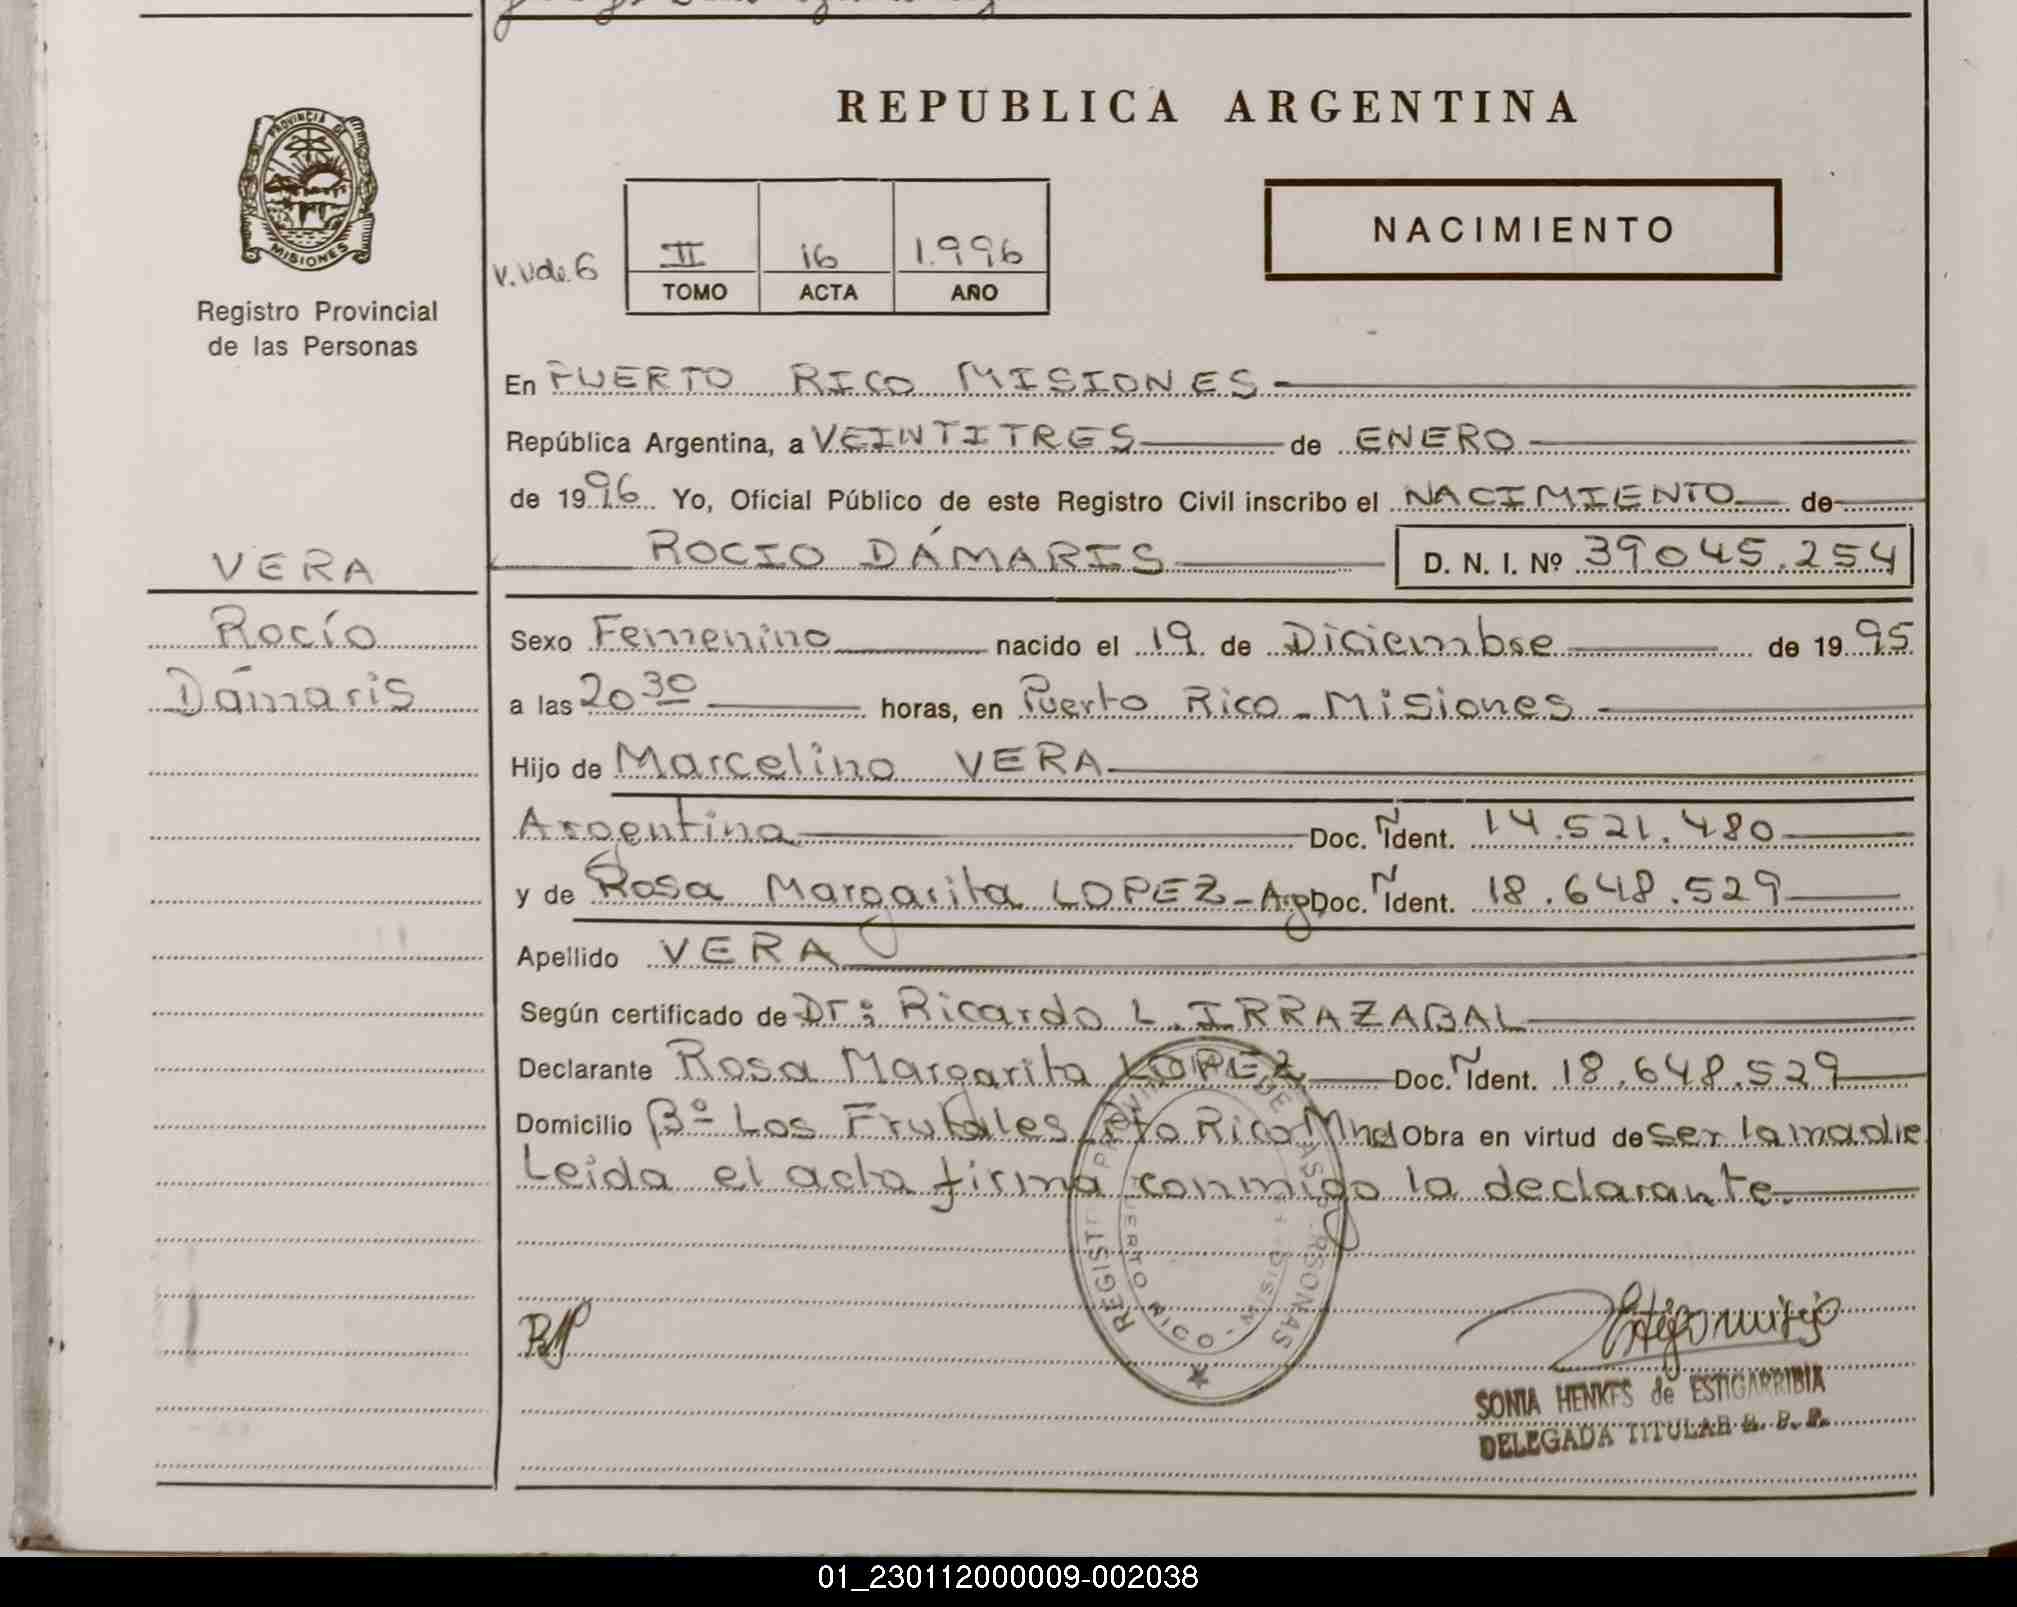 REPUBLICA ARGENTINA
PROVINCIA DE
MISIONES
Registro Provincial
de las Personas
NACIMIENTO
II 16 1.996
TOMO ACTA AÑO
En PUERTO RICO MISIONES
República Argentina, a VEINTITRES de ENERO
de 1996 Yo, Oficial Público de este Registro Civil inscribo el NACIMIENTO de
ROCIO DÁMARIS D. N. I. Nº 39.045.254
VERA
Rocío
Dámaris
Sexo Femenino nacido el 19 de Diciembre de 1995
a las 20 30 horas, en Puerto Rico - Misiones
Hijo de Marcelino VERA
Argentina Doc. Ident. 14.521.480
y de Rosa Margarita LOPEZ - Arg Doc. Ident. 18.648.529
Apellido VERA
Según certificado de Dr: Ricardo L. IRRAZABAL
Declarante Rosa Margarita LOPEZ Doc. Ident. 18.648.529
Domicilio Bº Los Frutales Pto Rico Mnes Obra en virtud de ser la madre
Leida el acta firma conmigo la declarante.
PUERTO RICO
SONIA HENKES de ESTIGARRIBIA
DELEGADA TITULAR R. P. P.
01_230112000009-002038